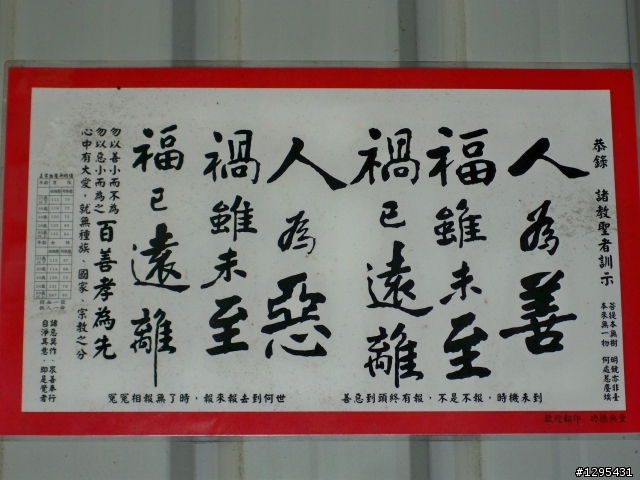 恭錄 諸教聖者訓示
菩提本無樹 明鏡亦非臺
本來無一物 何處惹塵埃
人為善
福雖未至
禍已遠離
人為惡
禍雖未至
福已遠離
勿以善小而不為
勿以惡小而為之
百善孝為先
心中有大愛，就無種族、國家、宗教之分
諸惡莫作、眾善奉行
自淨其意、即是覺者
善惡到頭終有報，不是不報，時機未到
冤冤相報無了時，報來報去到何世
歡迎翻印 功德無量
#1295431